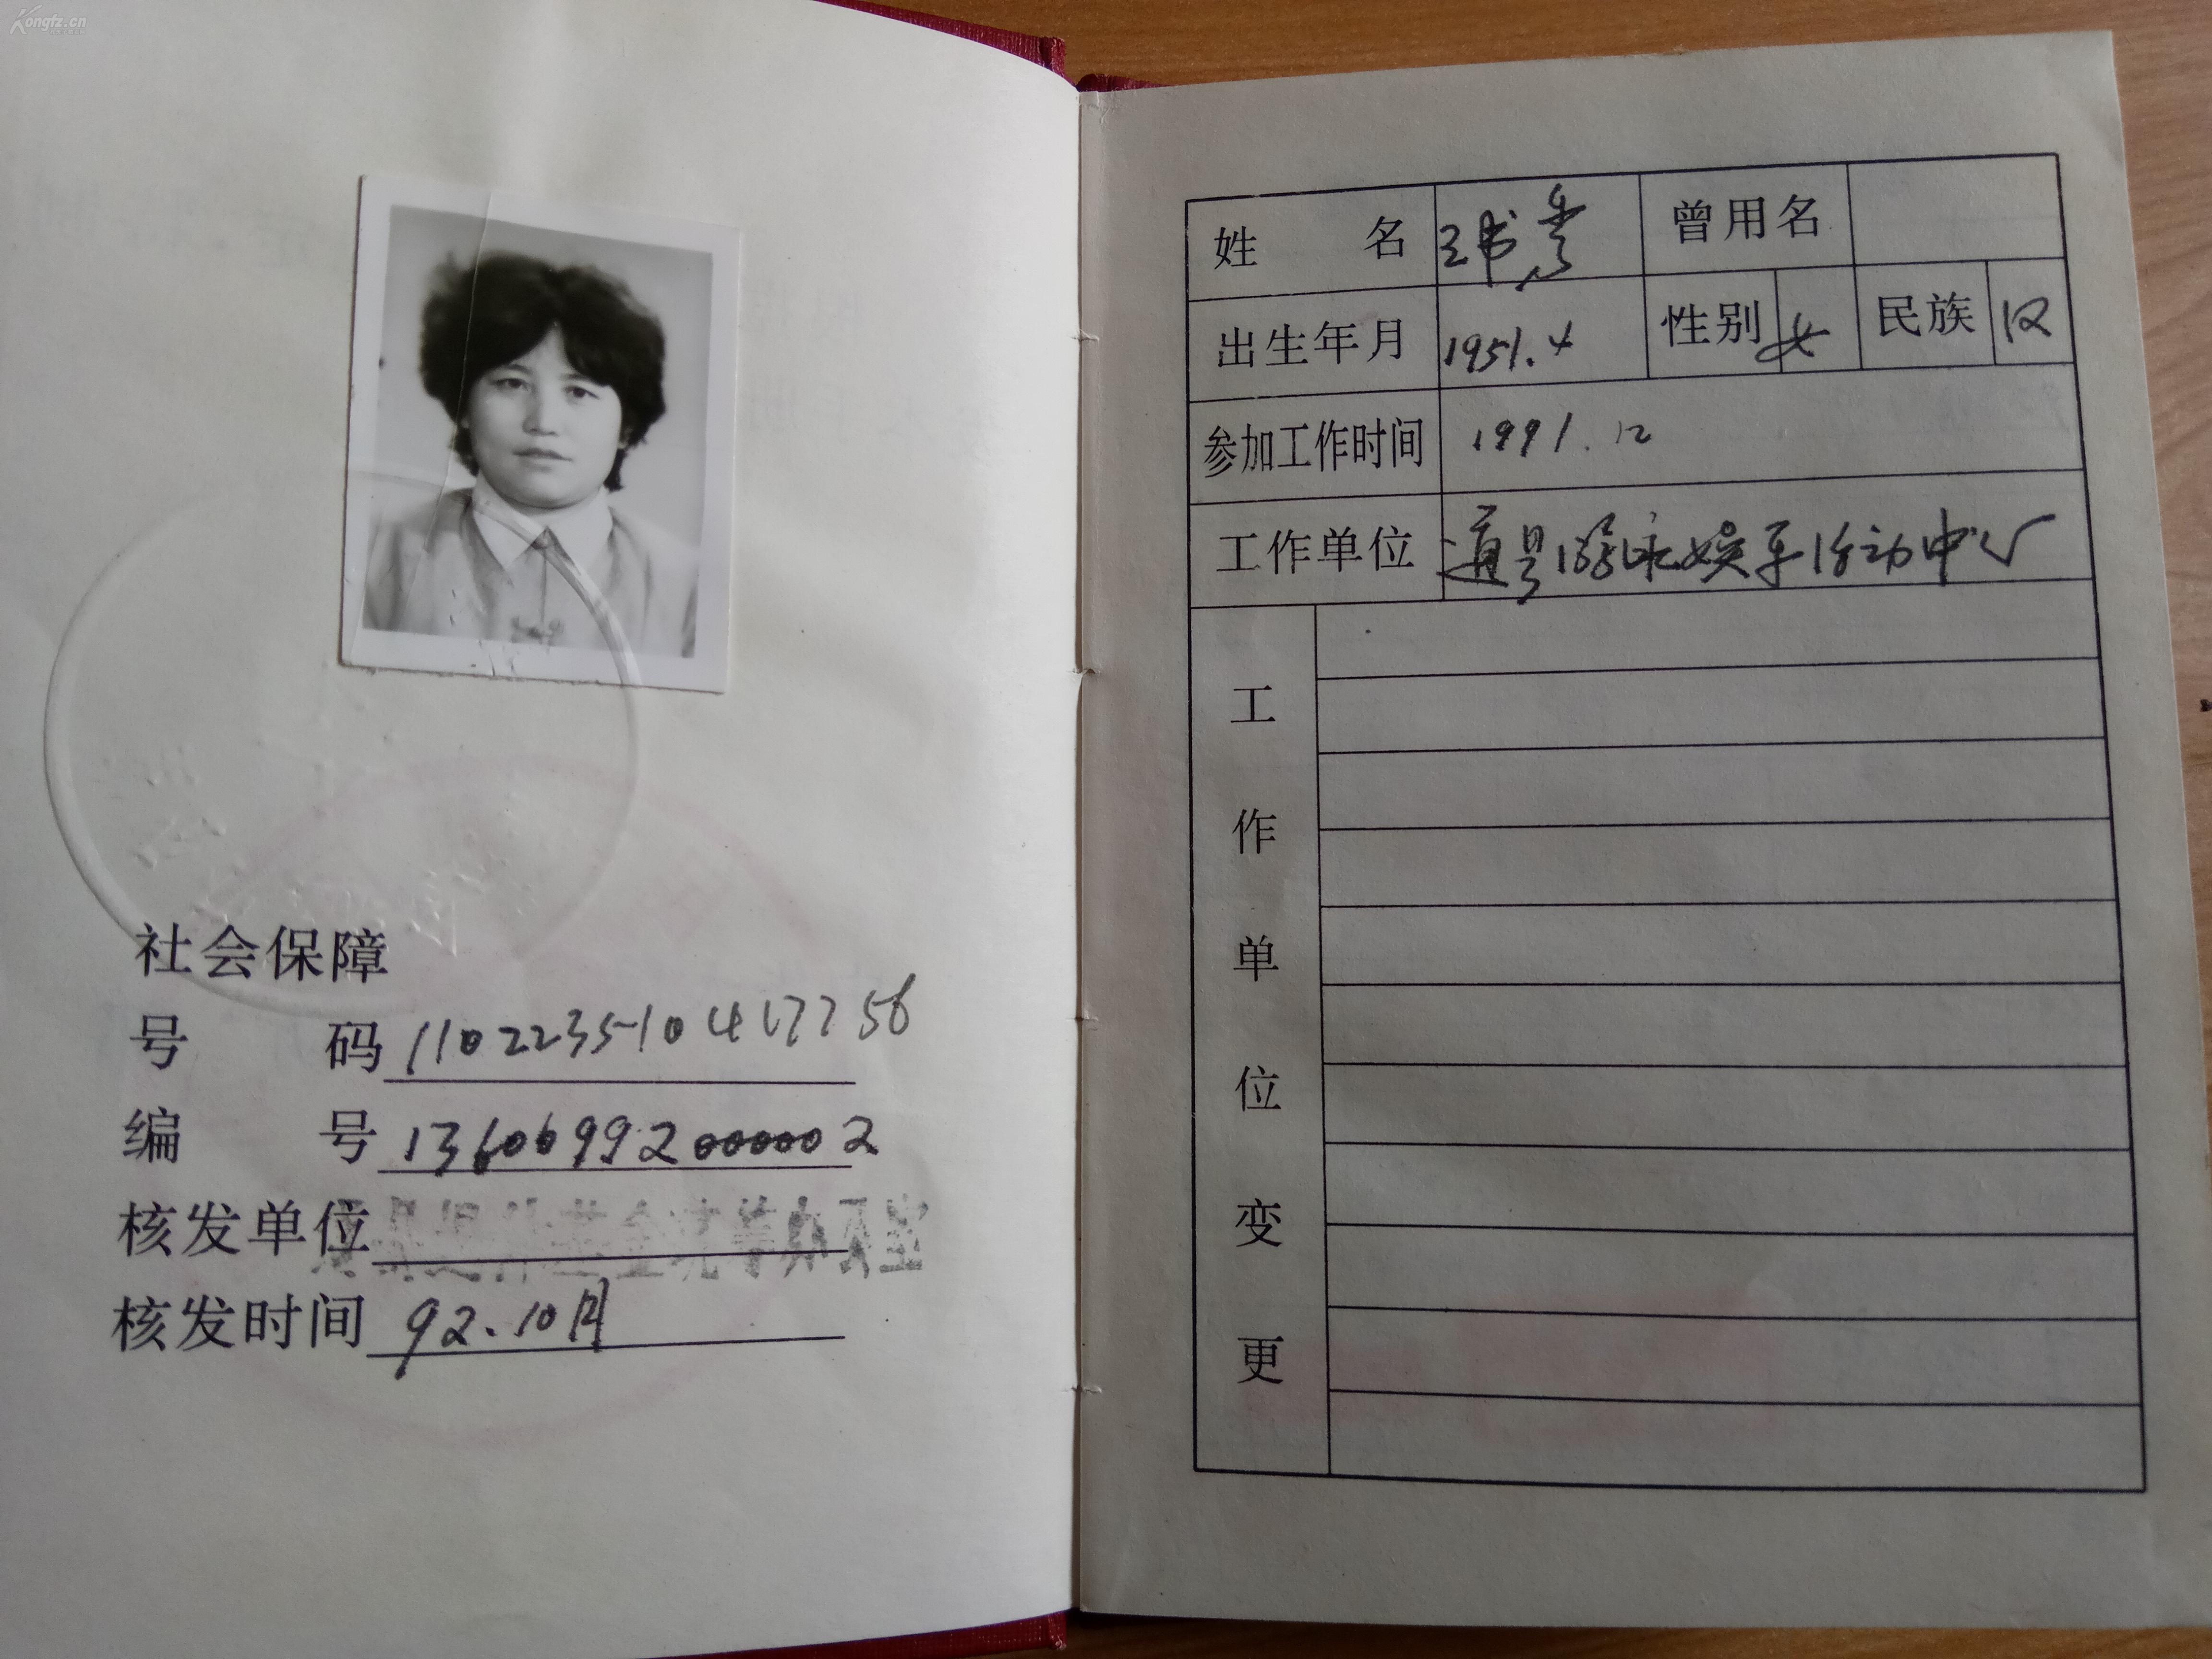 Kongfz.cn
社会保障
号 码 110223510417756
编 号 13606992000002
核发单位 统筹办公室
核发时间 92.10月
姓 名 王书秀 曾用名
出生年月 1951.4 性别 女 民族 汉
参加工作时间 1991.12
工作单位 通县游泳娱乐活动中心
工作单位变更